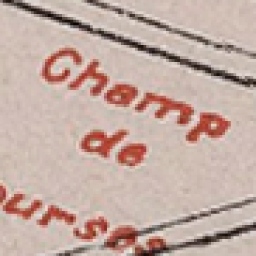 Champ
de
ourses